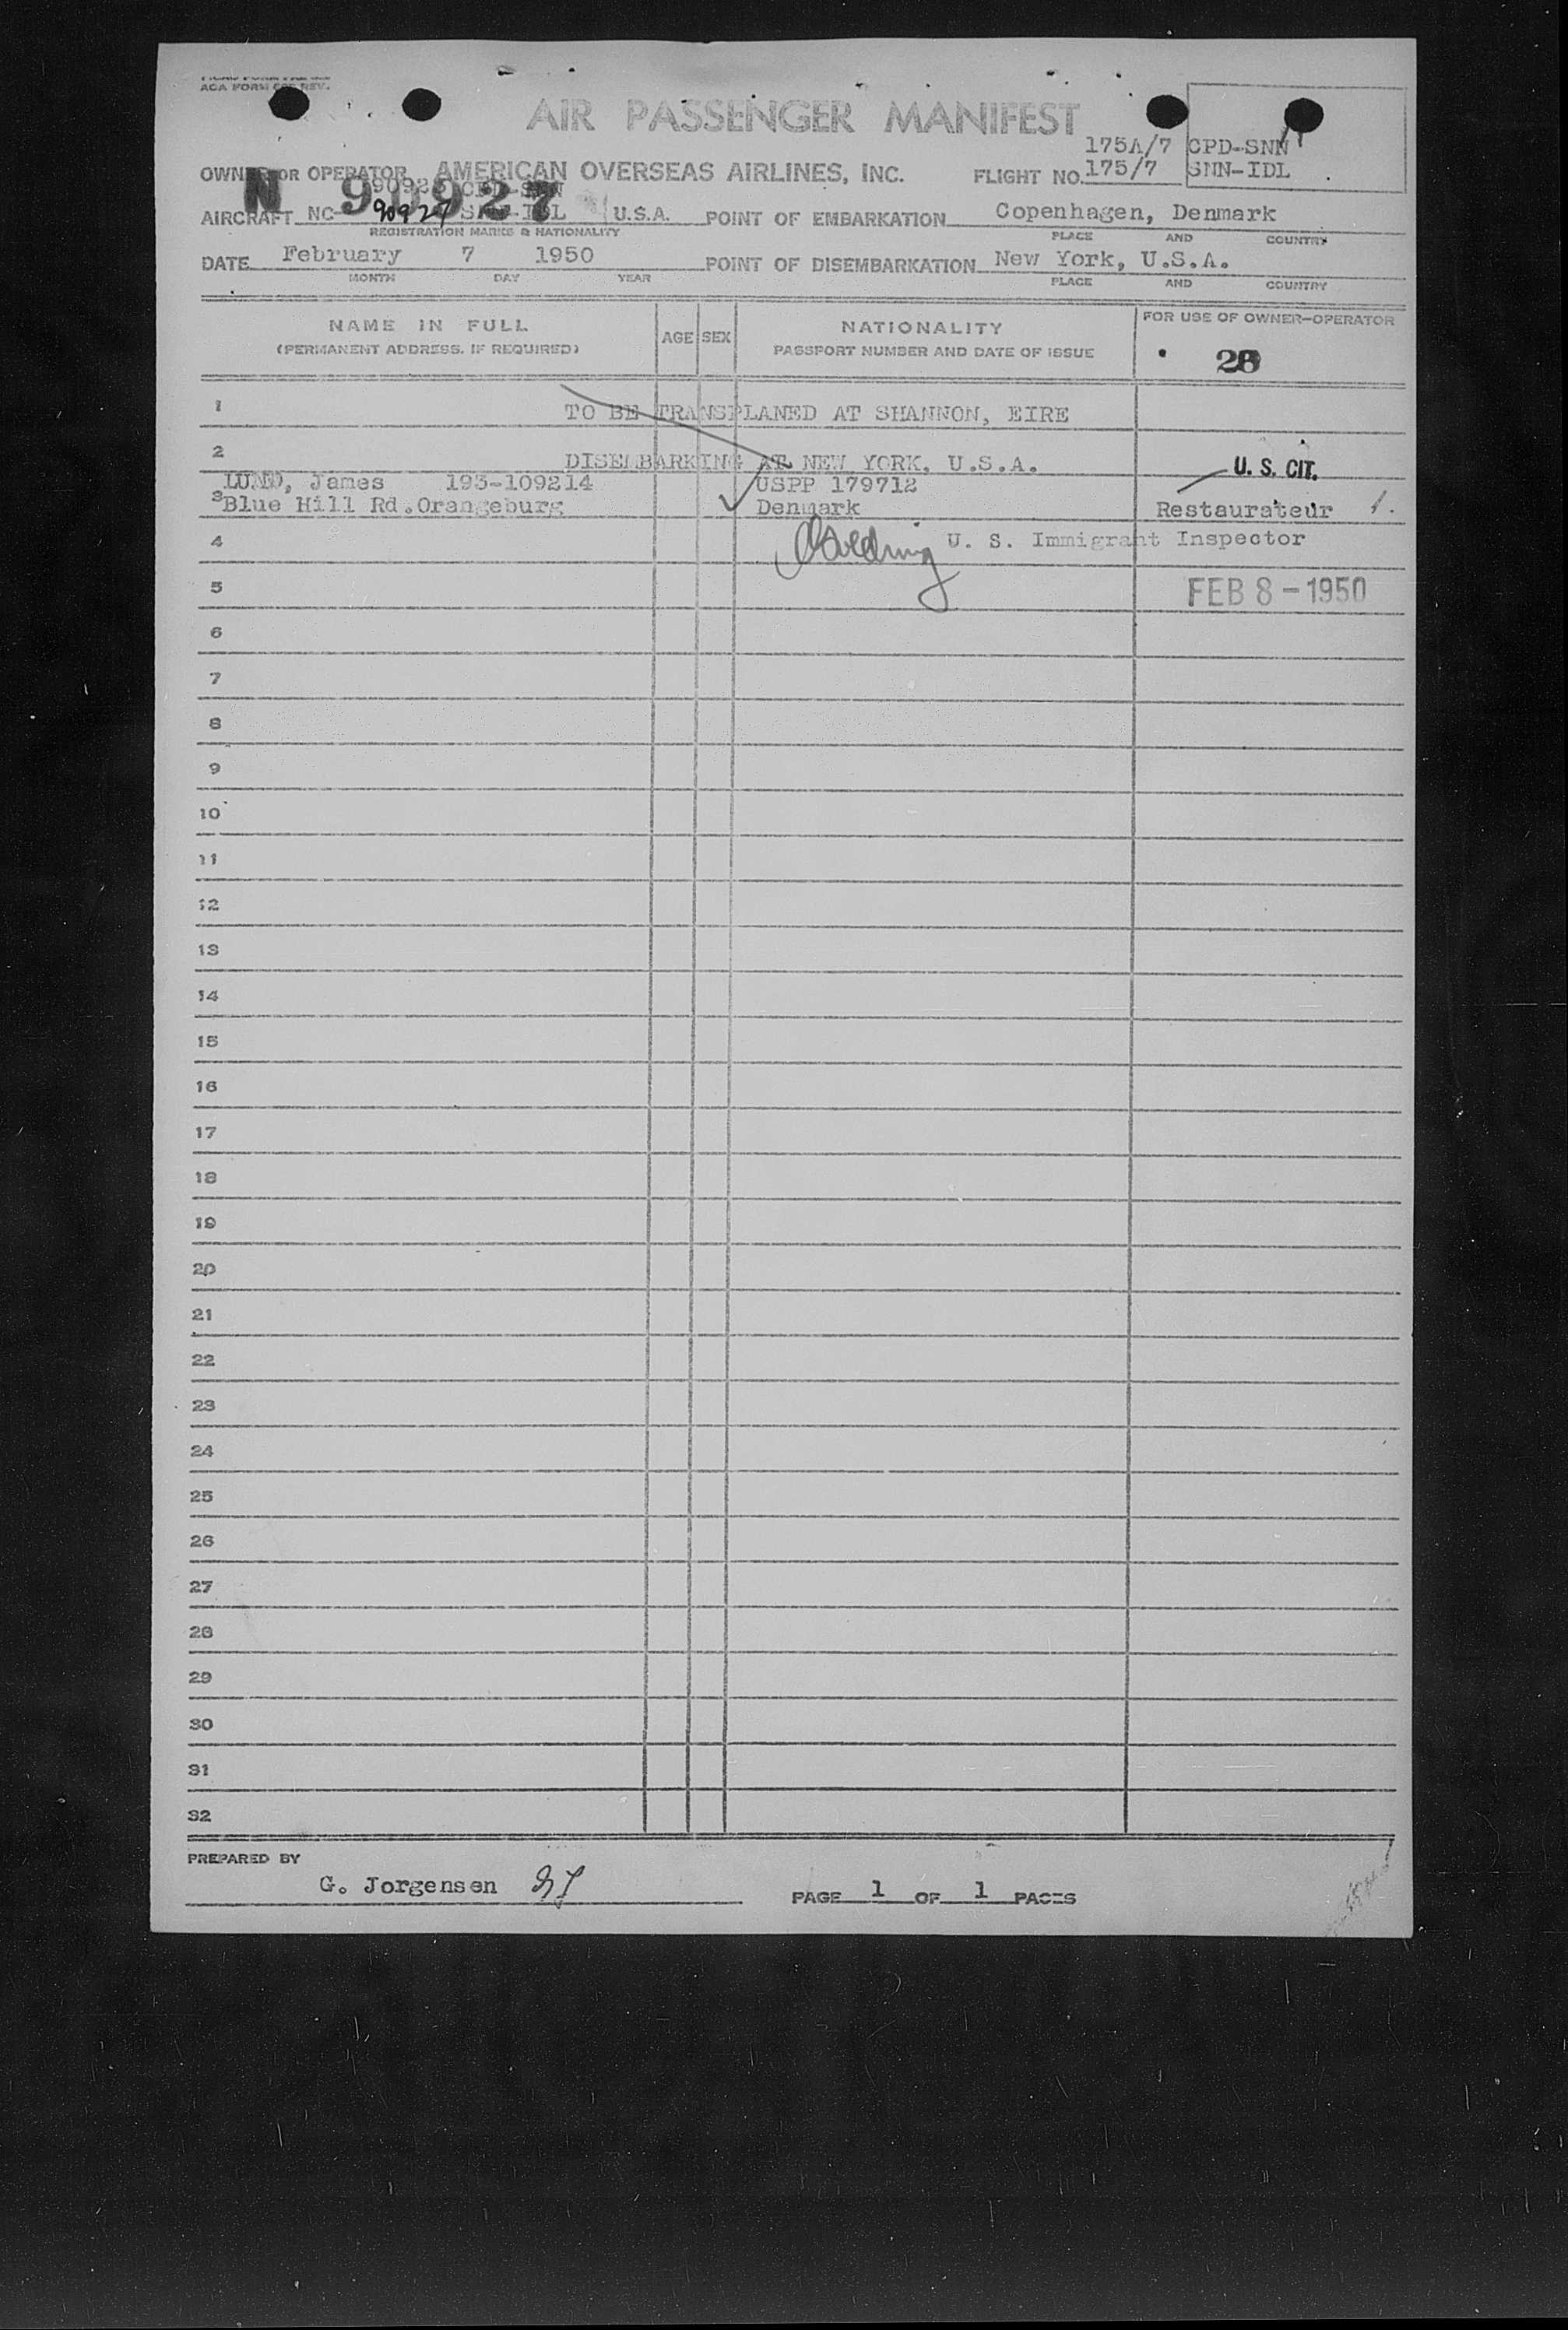 ACA FORM REV.
AIR PASSENGER MANIFEST
175A/7 CPD-SNN
OWNER OR OPERATOR AMERICAN OVERSEAS AIRLINES, INC. FLIGHT NO. 175/7 SNN-IDL
N 90927
CPD-SNN
AIRCRAFT NC 90927 SNN-IDL U.S.A. POINT OF EMBARKATION Copenhagen, Denmark
REGISTRATION MARKS & NATIONALITY PLACE AND COUNTRY
DATE February 7 1950 POINT OF DISEMBARKATION New York, U.S.A.
MONTH DAY YEAR PLACE AND COUNTRY
NAME IN FULL AGE SEX NATIONALITY FOR USE OF OWNER-OPERATOR
(PERMANENT ADDRESS, IF REQUIRED) PASSPORT NUMBER AND DATE OF ISSUE
1 TO BE TRANSPLANED AT SHANNON, EIRE
2 DISEMBARKING AT NEW YORK, U.S.A. U. S. CIT.
LUND, James 195-109214 USPP 179712
3 Blue Hill Rd.Orangeburg Denmark Restaurateur 1.
4 U. S. Immigrant Inspector
5 FEB 8 - 1950
6
7
8
9
10
11
12
13
14
15
16
17
18
19
20
21
22
23
24
25
26
27
28
29
30
31
32
PREPARED BY
G. Jorgensen GJ PAGE 1 OF 1 PAGES